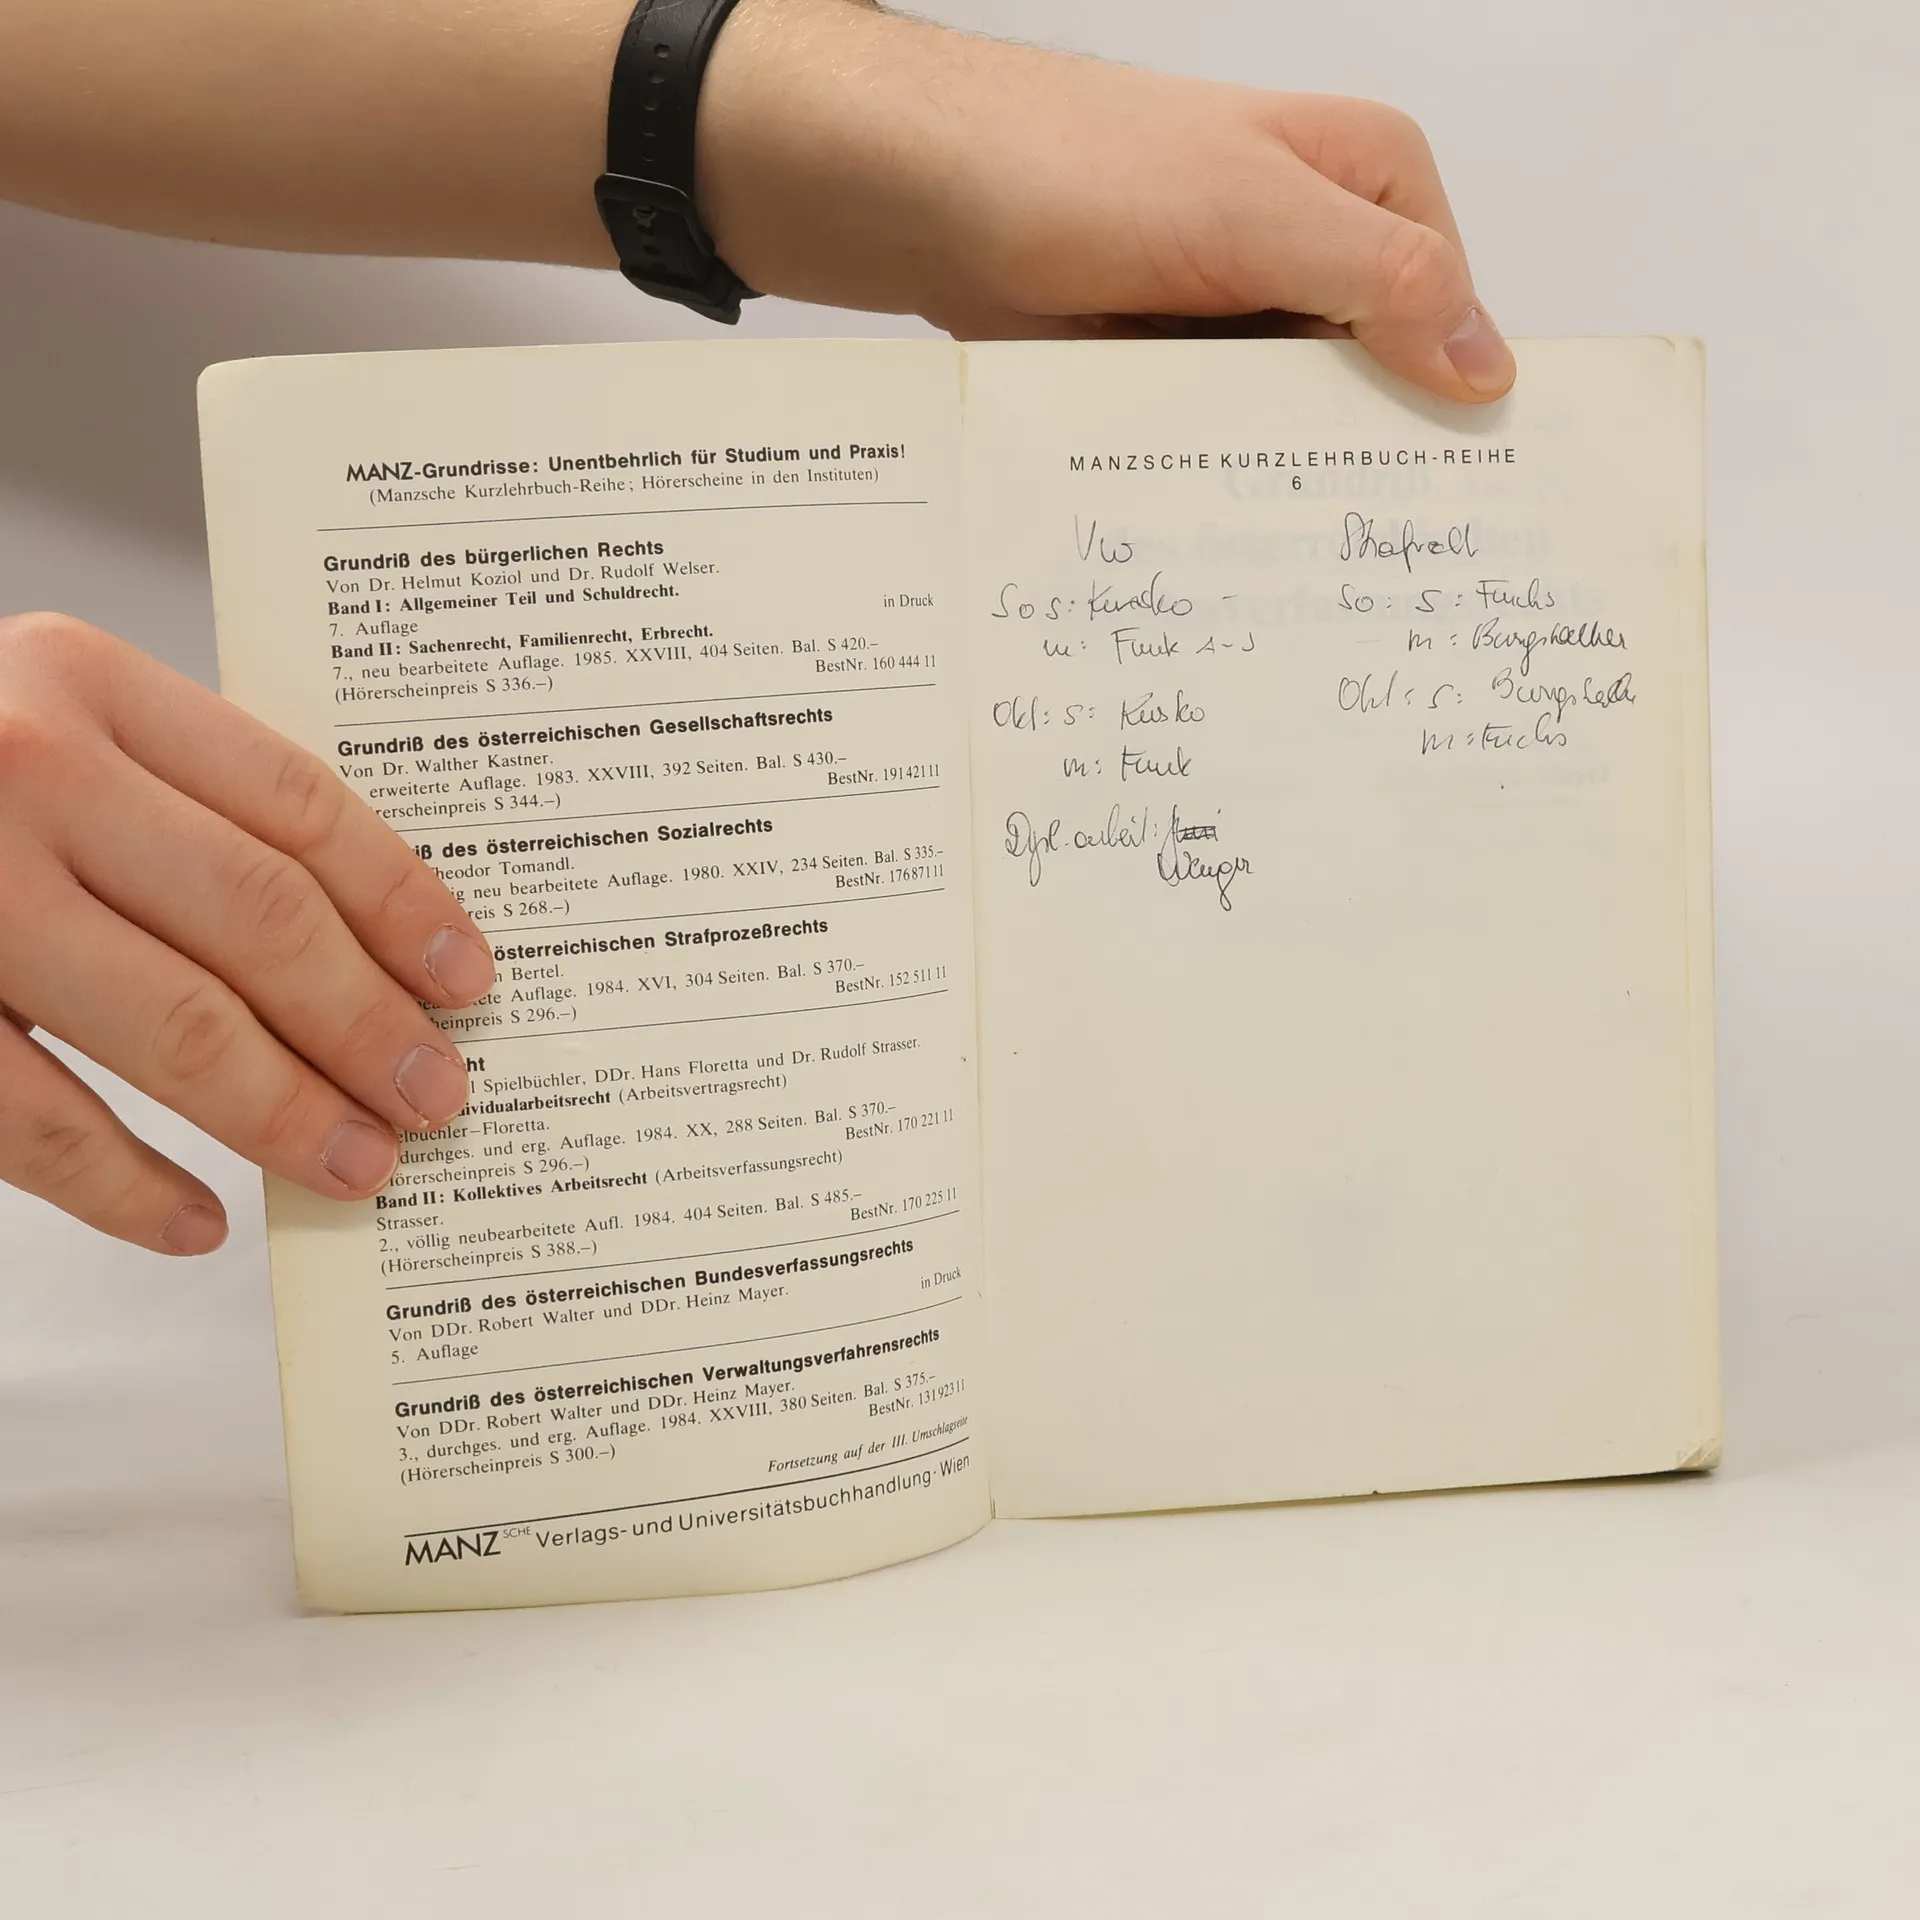 MANZ-Grundrisse: Unentbehrlich für Studium und Praxis!
(Manzsche Kurzlehrbuch-Reihe; Hörerscheine in den Instituten)
Grundriß des bürgerlichen Rechts
Von Dr. Helmut Koziol und Dr. Rudolf Welser.
Band I: Allgemeiner Teil und Schuldrecht.
7. Auflage in Druck
Band II: Sachenrecht, Familienrecht, Erbrecht.
7., neu bearbeitete Auflage. 1985. XXVIII, 404 Seiten. Bal. S 420.–
(Hörerscheinpreis S 336.–) BestNr. 160 444 11
Grundriß des österreichischen Gesellschaftsrechts
Von Dr. Walther Kastner.
erweiterte Auflage. 1983. XXVIII, 392 Seiten. Bal. S 430.–
rerscheinpreis S 344.–) BestNr. 191 421 11
iß des österreichischen Sozialrechts
heodor Tomandl.
ig neu bearbeitete Auflage. 1980. XXIV, 234 Seiten. Bal. S 335.–
reis S 268.–) BestNr. 176 871 11
österreichischen Strafprozeßrechts
n Bertel.
ete Auflage. 1984. XVI, 304 Seiten. Bal. S 370.–
heinpreis S 296.–) BestNr. 152 511 11
ht
l Spielbüchler, DDr. Hans Floretta und Dr. Rudolf Strasser.
dividualarbeitsrecht (Arbeitsvertragsrecht)
elbüchler–Floretta.
durchges. und erg. Auflage. 1984. XX, 288 Seiten. Bal. S 370.–
örerscheinpreis S 296.–) BestNr. 170 221 11
Band II: Kollektives Arbeitsrecht (Arbeitsverfassungsrecht)
Strasser.
2., völlig neubearbeitete Aufl. 1984. 404 Seiten. Bal. S 485.–
(Hörerscheinpreis S 388.–) BestNr. 170 225 11
Grundriß des österreichischen Bundesverfassungsrechts
Von DDr. Robert Walter und DDr. Heinz Mayer.
5. Auflage in Druck
Grundriß des österreichischen Verwaltungsverfahrensrechts
Von DDr. Robert Walter und DDr. Heinz Mayer.
3., durchges. und erg. Auflage. 1984. XXVIII, 380 Seiten. Bal. S 375.–
(Hörerscheinpreis S 300.–) BestNr. 131 923 11
Fortsetzung auf der III. Umschlagseite
MANZSCHE Verlags- und Universitätsbuchhandlung · Wien
MANZSCHE KURZLEHRBUCH-REIHE
6
Vw
So s:
m: Funk
Okt: s: Kusko
m: Funk
Dipl.arbeit:
Wenger
So: s: Fuchs
m: Burgstaller
Okt: s: Burgstaller
m: Fuchs